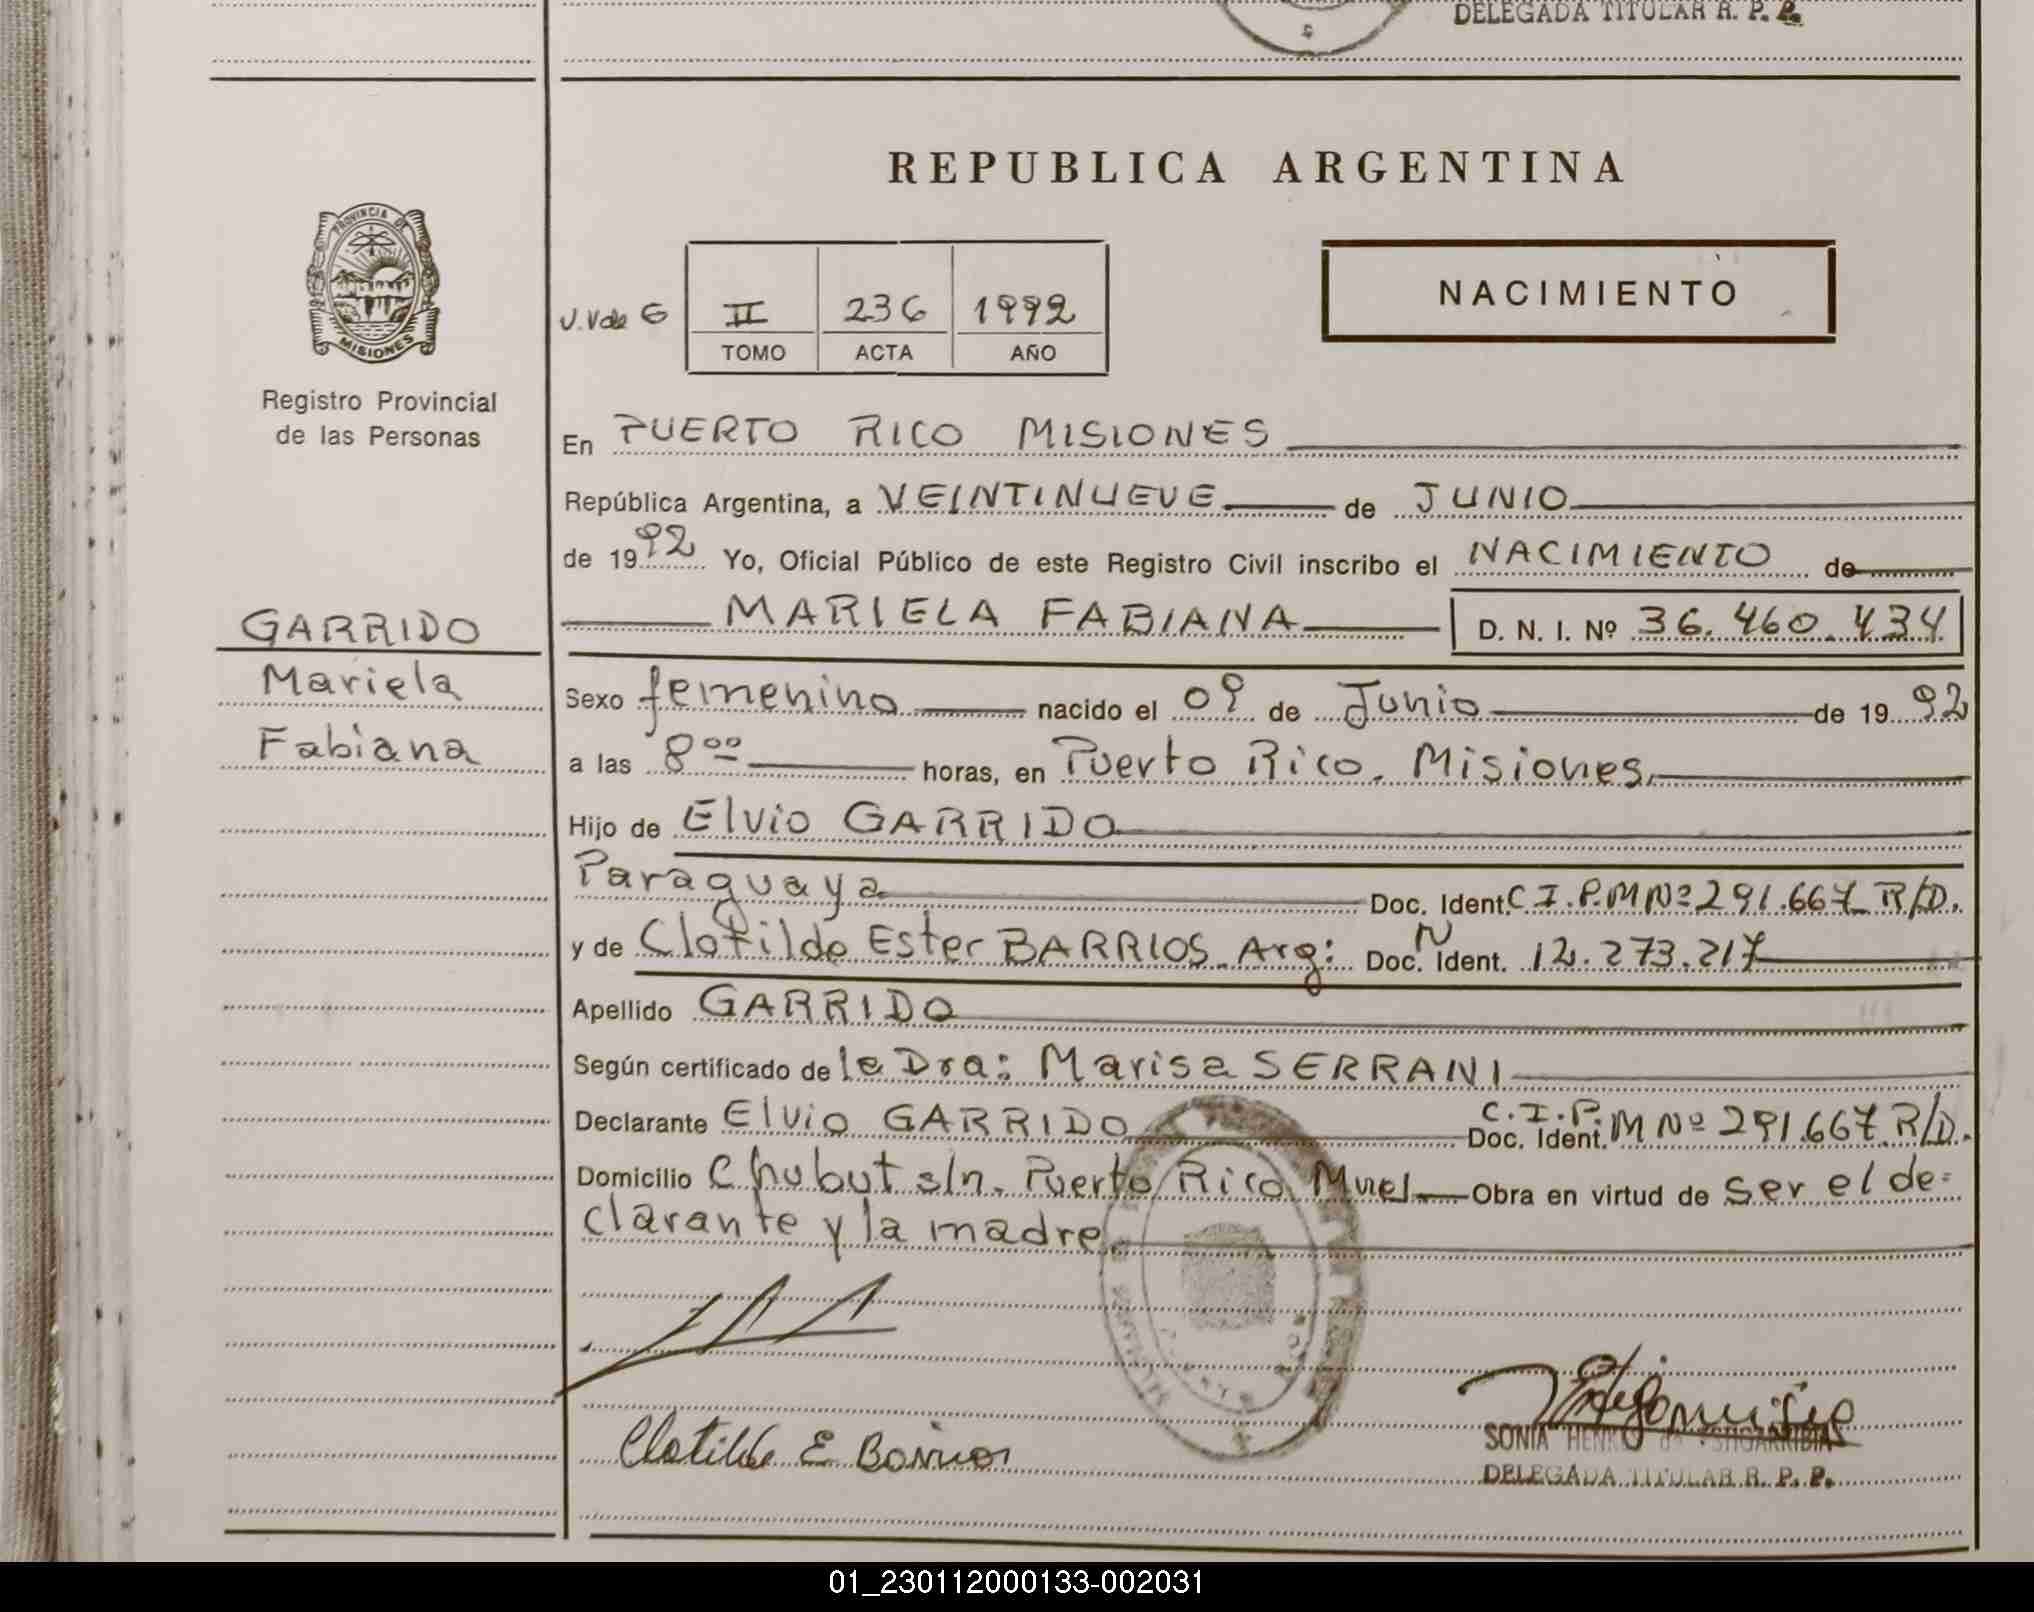 DELEGADA TITULAR R. P. P.
REPUBLICA ARGENTINA
PROVINCIA DE
MISIONES
Registro Provincial
de las Personas
NACIMIENTO
II 236 1992
TOMO ACTA AÑO
En PUERTO RICO MISIONES
República Argentina, a VEINTINUEVE de JUNIO
de 1992 Yo, Oficial Público de este Registro Civil inscribo el NACIMIENTO de
MARIELA FABIANA D. N. I. Nº 36.460.434
GARRIDO
Mariela
Fabiana
Sexo femenino nacido el 09 de Junio de 1992
a las 8 00 horas, en Puerto Rico. Misiones.
Hijo de Elvio GARRIDO
Paraguaya Doc. Ident. C.I.P.M Nº 291.667 R/D.
y de Clotilde Ester BARRIOS. Arg: Doc. N Ident. 12.273.217
Apellido GARRIDO
Según certificado de la Dra: Marisa SERRANI
Declarante Elvio GARRIDO Doc. Ident. C.I.P.M Nº 291.667 R/D.
Domicilio Chubut s/n. Puerto Rico Mnes. Obra en virtud de ser el de-
clarante y la madre.
Clotilde E Barrios
SONIA
DELEGADA TITULAR R. P. P.
01_230112000133-002031